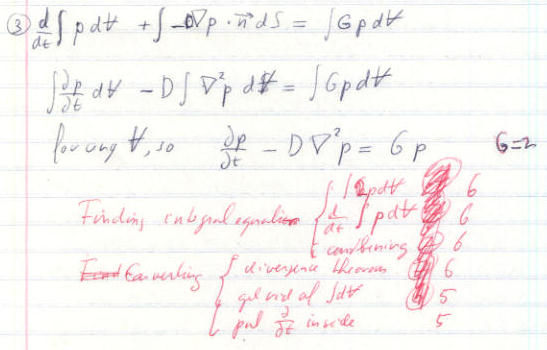 ③ d/dt ∫ p dV + ∫ -D∇p · n⃗ dS = ∫ G p dV
∫ ∂p/∂t dV - D ∫ ∇²p dV = ∫ G p dV
for any V, so ∂p/∂t - D∇²p = G p G=2
∫ 2pdV 6
Finding integral equation { d/dt ∫ p dV 6
combining 6
Converting { divergence theorem 6
get rid of ∫dV 5
put ∂/∂t inside 5